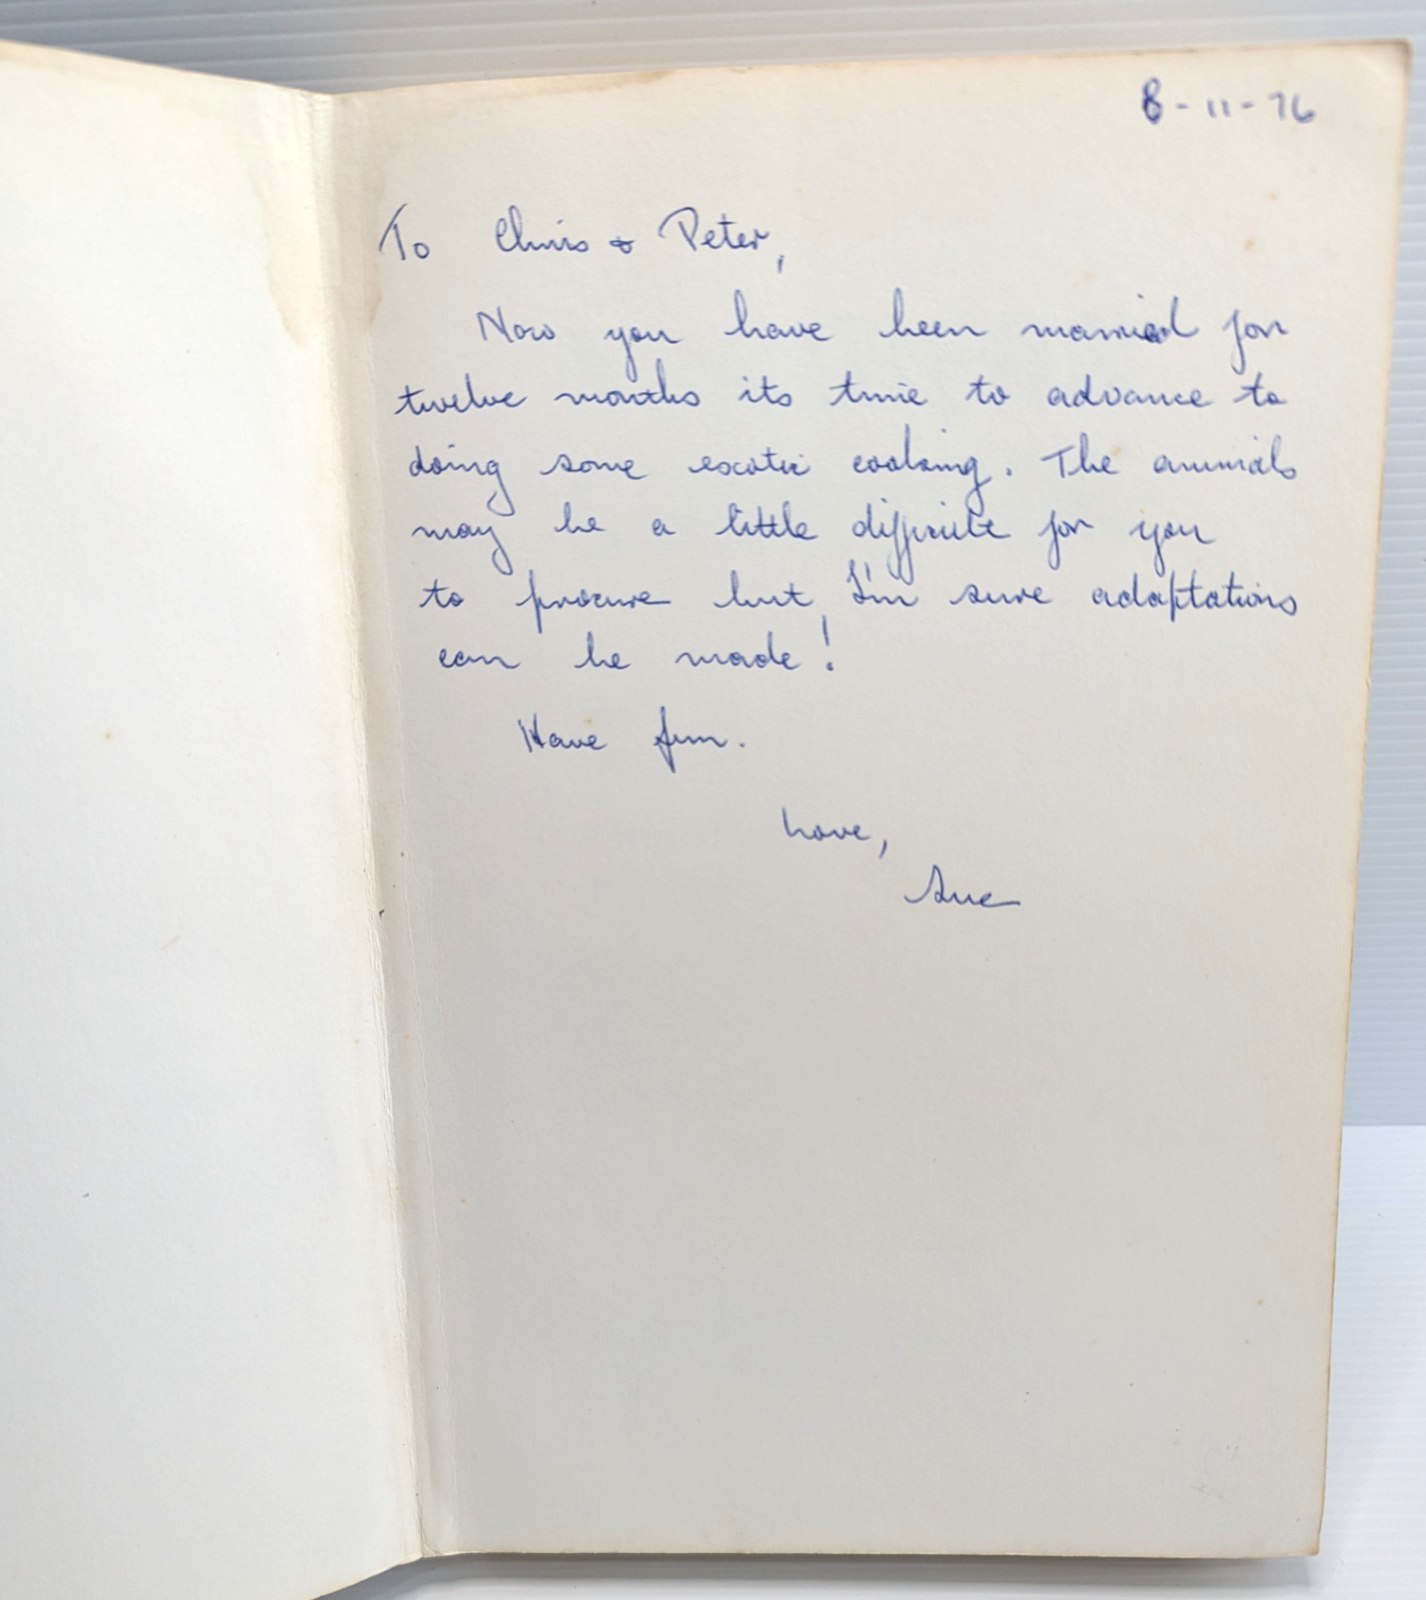 8-11-76
To Chris & Peter,
Now you have been married for
twelve months its time to advance to
doing some exotic cooking. The animals
may be a little difficult for you
to procure but, I'm sure adaptations
can be made!
Have fun.
Love,
Sue